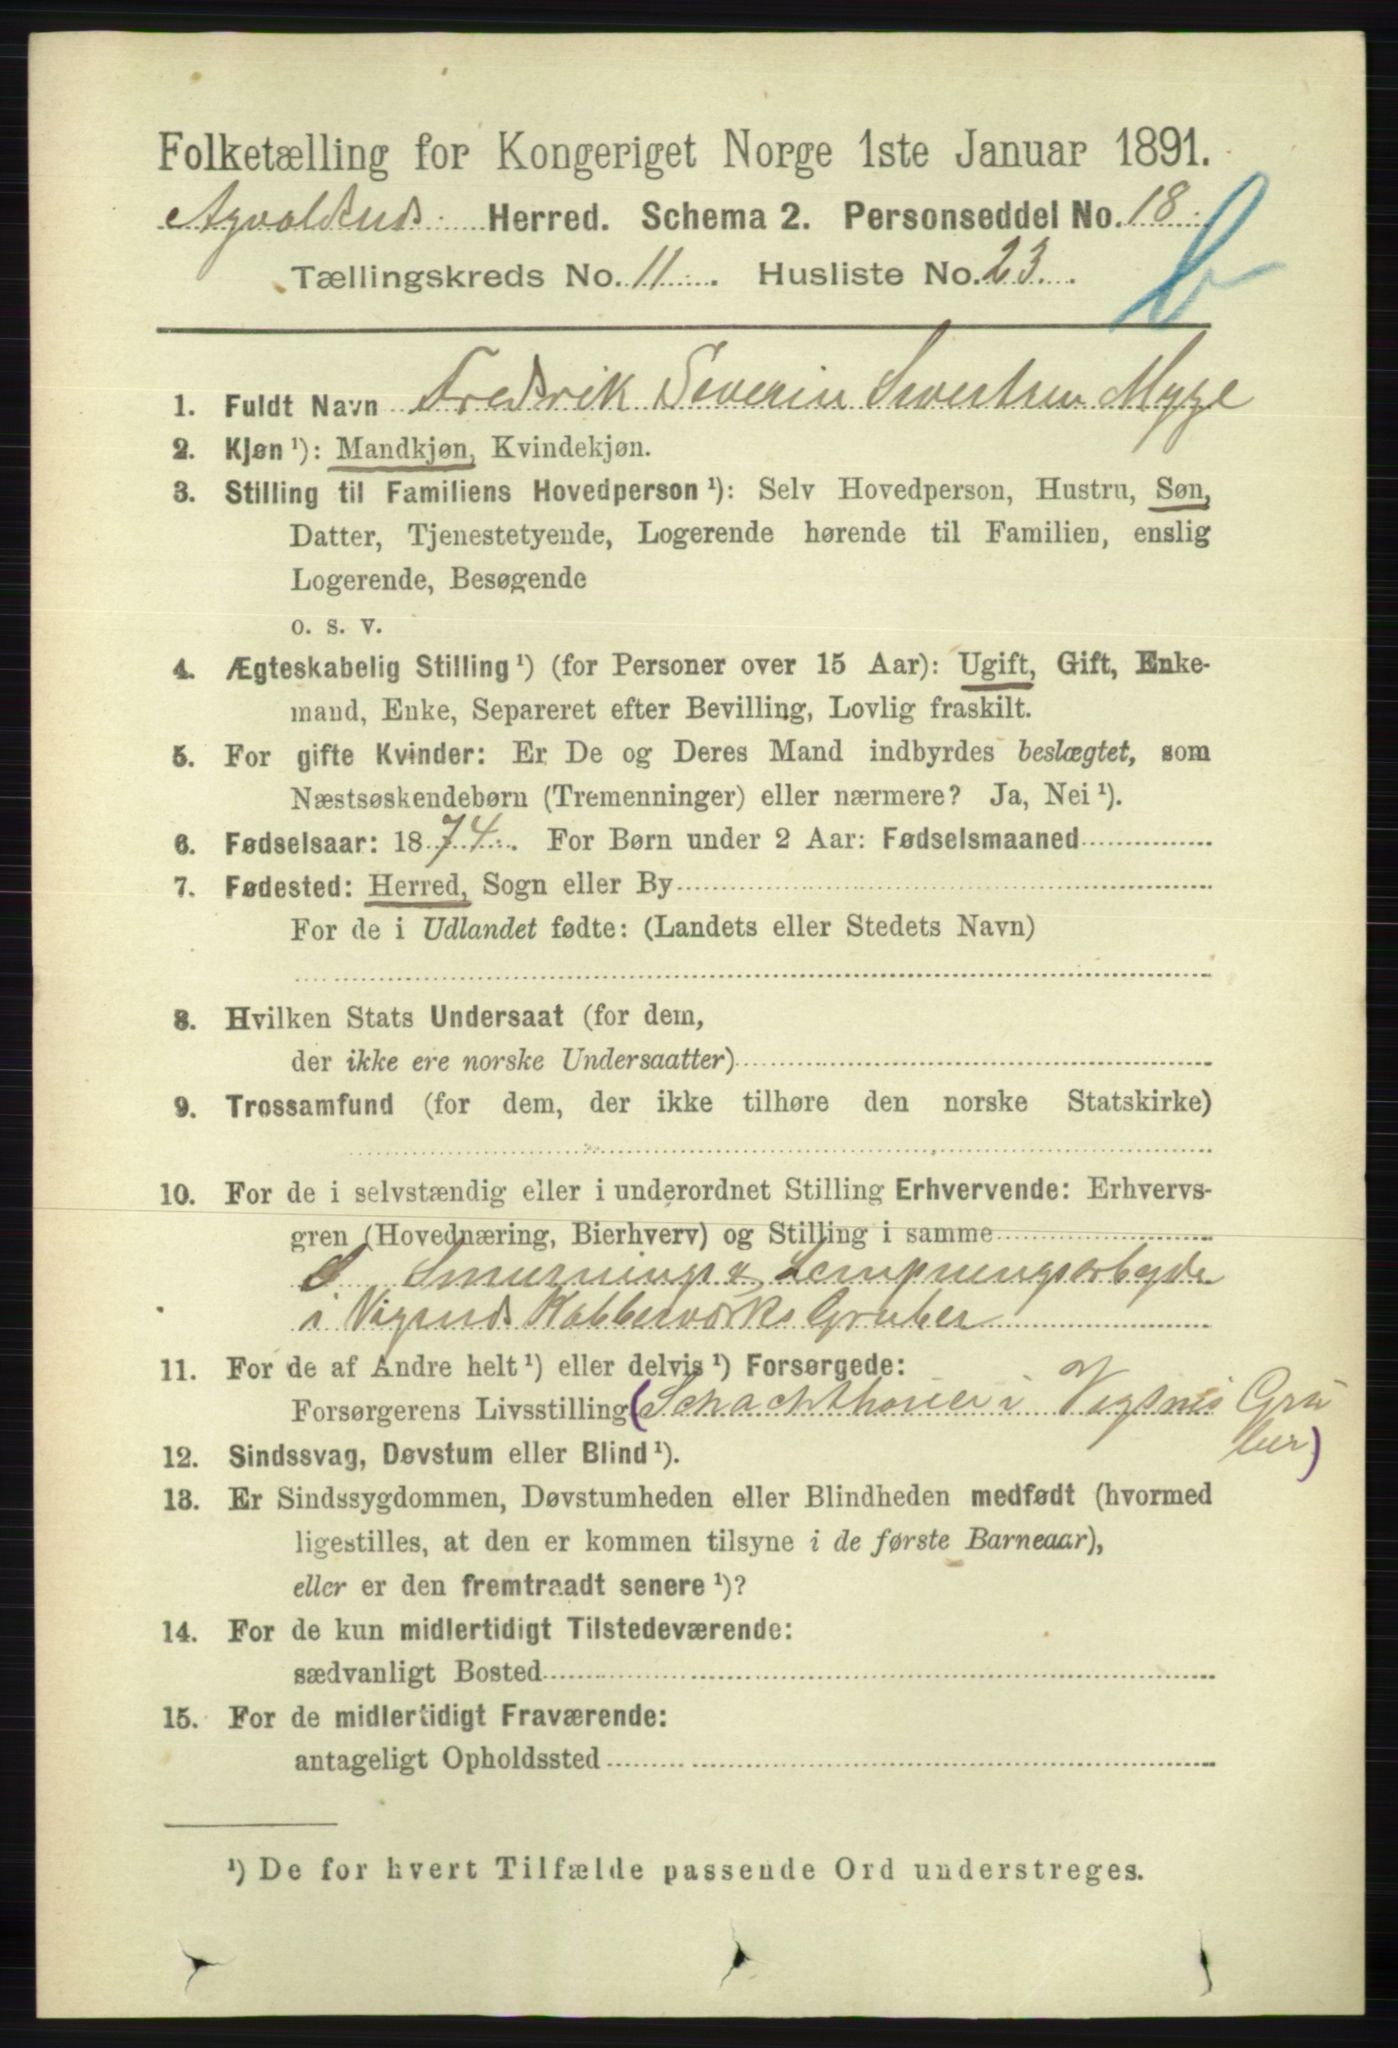 Folketælling for Kongeriget Norge 1ste Januar 1891.
Herred. Schema 2. Personseddel No. 18.
Tællingskreds No. 11. Husliste No. 23.
b
1. Fuldt Navn Fredrik Severin Sivertsen Myge
2. Kjøn ¹): Mandkjøn, Kvindekjøn.
3. Stilling til Familiens Hovedperson ¹): Selv Hovedperson, Hustru, Søn,
Datter, Tjenestetyende, Logerende hørende til Familien, enslig
Logerende, Besøgende
o. s. v.
4. Ægteskabelig Stilling ¹) (for Personer over 15 Aar): Ugift, Gift, Enke-
mand, Enke, Separeret efter Bevilling, Lovlig fraskilt.
5. For gifte Kvinder: Er De og Deres Mand indbyrdes beslægtet, som
Næstsøskendebørn (Tremenninger) eller nærmere? Ja, Nei ¹).
6. Fødselsaar: 1874. For Børn under 2 Aar: Fødselsmaaned
7. Fødested: Herred, Sogn eller By
For de i Udlandet fødte: (Landets eller Stedets Navn)
8. Hvilken Stats Undersaat (for dem,
der ikke ere norske Undersaatter)
9. Trossamfund (for dem, der ikke tilhøre den norske Statskirke)
10. For de i selvstændig eller i underordnet Stilling Erhvervende: Erhvervs-
gren (Hovednæring, Bierhverv) og Stilling i samme
Smurnings &
i Kobberværks Gruber
11. For de af Andre helt ¹) eller delvis ¹) Forsørgede:
Forsørgerens Livsstilling (Schachthauer i Vigsnes Gru
ber)
12. Sindssvag, Døvstum eller Blind ¹).
13. Er Sindssygdommen, Døvstumheden eller Blindheden medfødt (hvormed
ligestilles, at den er kommen tilsyne i de første Barneaar),
eller er den fremtraadt senere ¹)?
14. For de kun midlertidigt Tilstedeværende:
sædvanligt Bosted
15. For de midlertidigt Fraværende:
antageligt Opholdssted
¹) De for hvert Tilfælde passende Ord understreges.